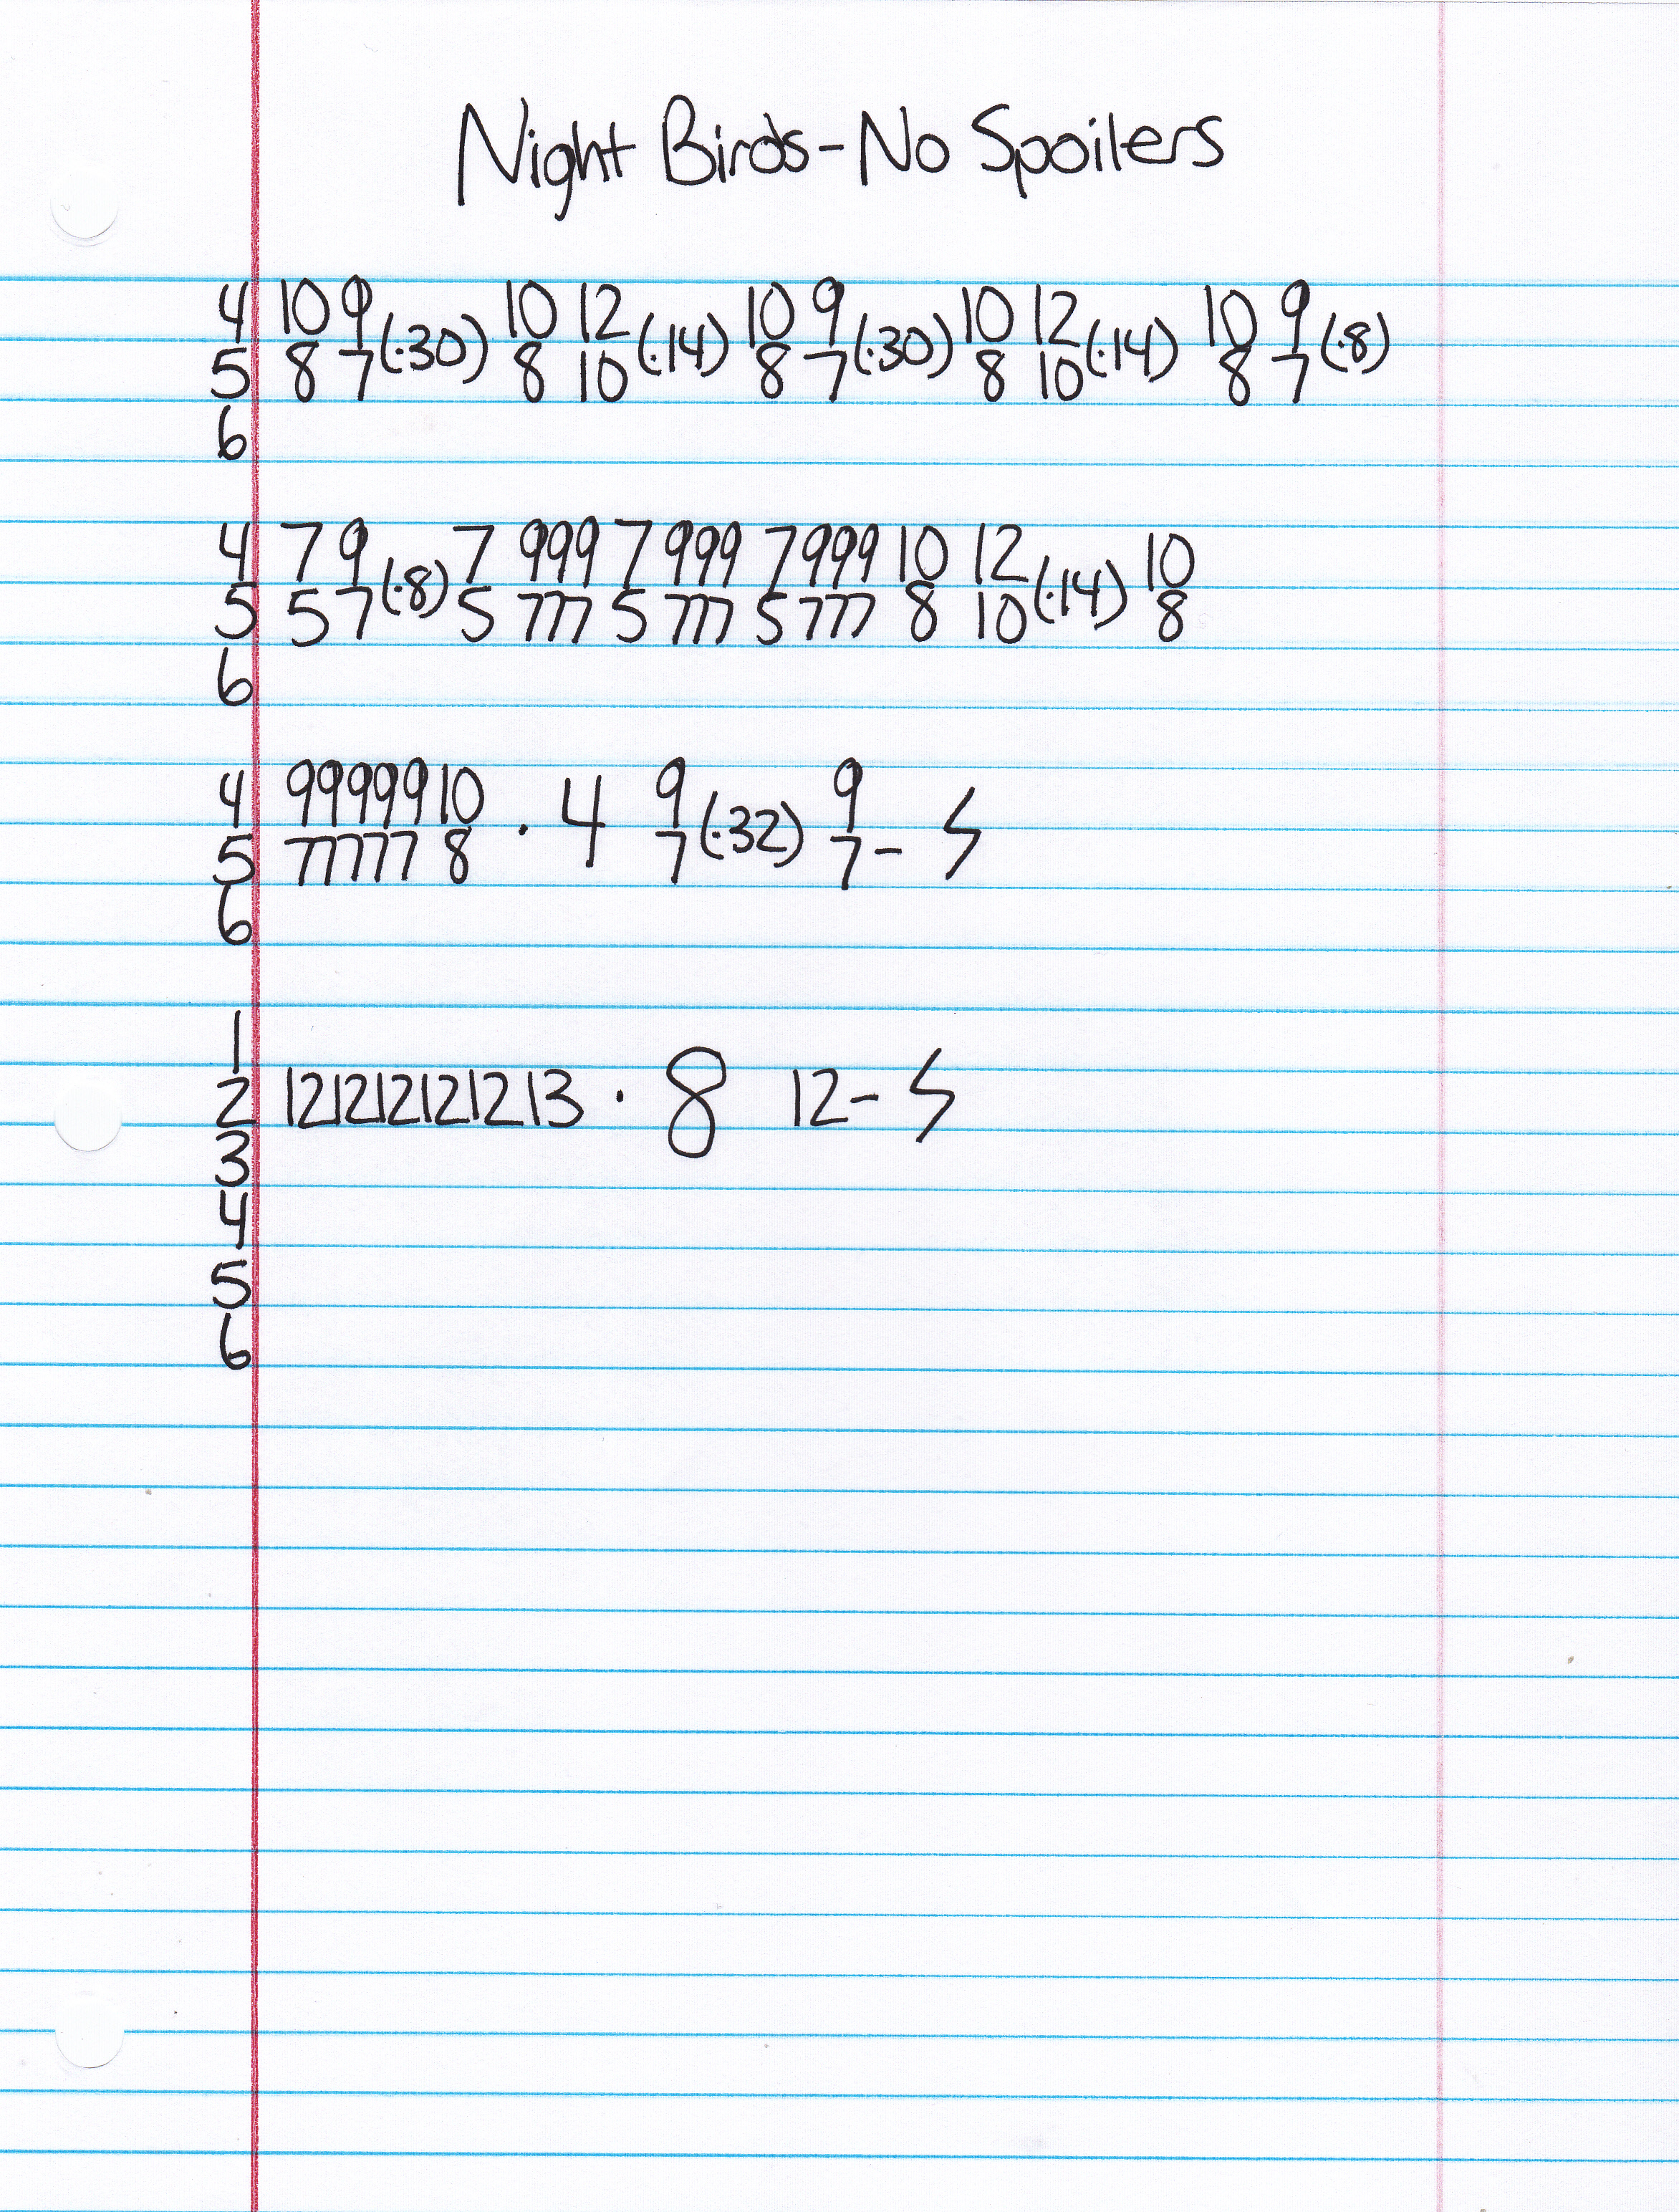 Night Birds - No Spoilers
4 10 9 10 12 10 9 10 12 10 9
(·30) (·14) (·30) (·14) (·8)
5 8 7 8 10 8 7 8 10 8 7
6
4 7 9 7 999 7 999 7 999 10 12 10
(·8) (·14)
5 5 7 5 777 5 777 5 777 8 10 8
6
4 99999 10 9 9
· 4 (·32) - S
5 77777 8 7 7
6
1
2 12 12 12 12 12 13 · 8 12 - S
3
4
5
6